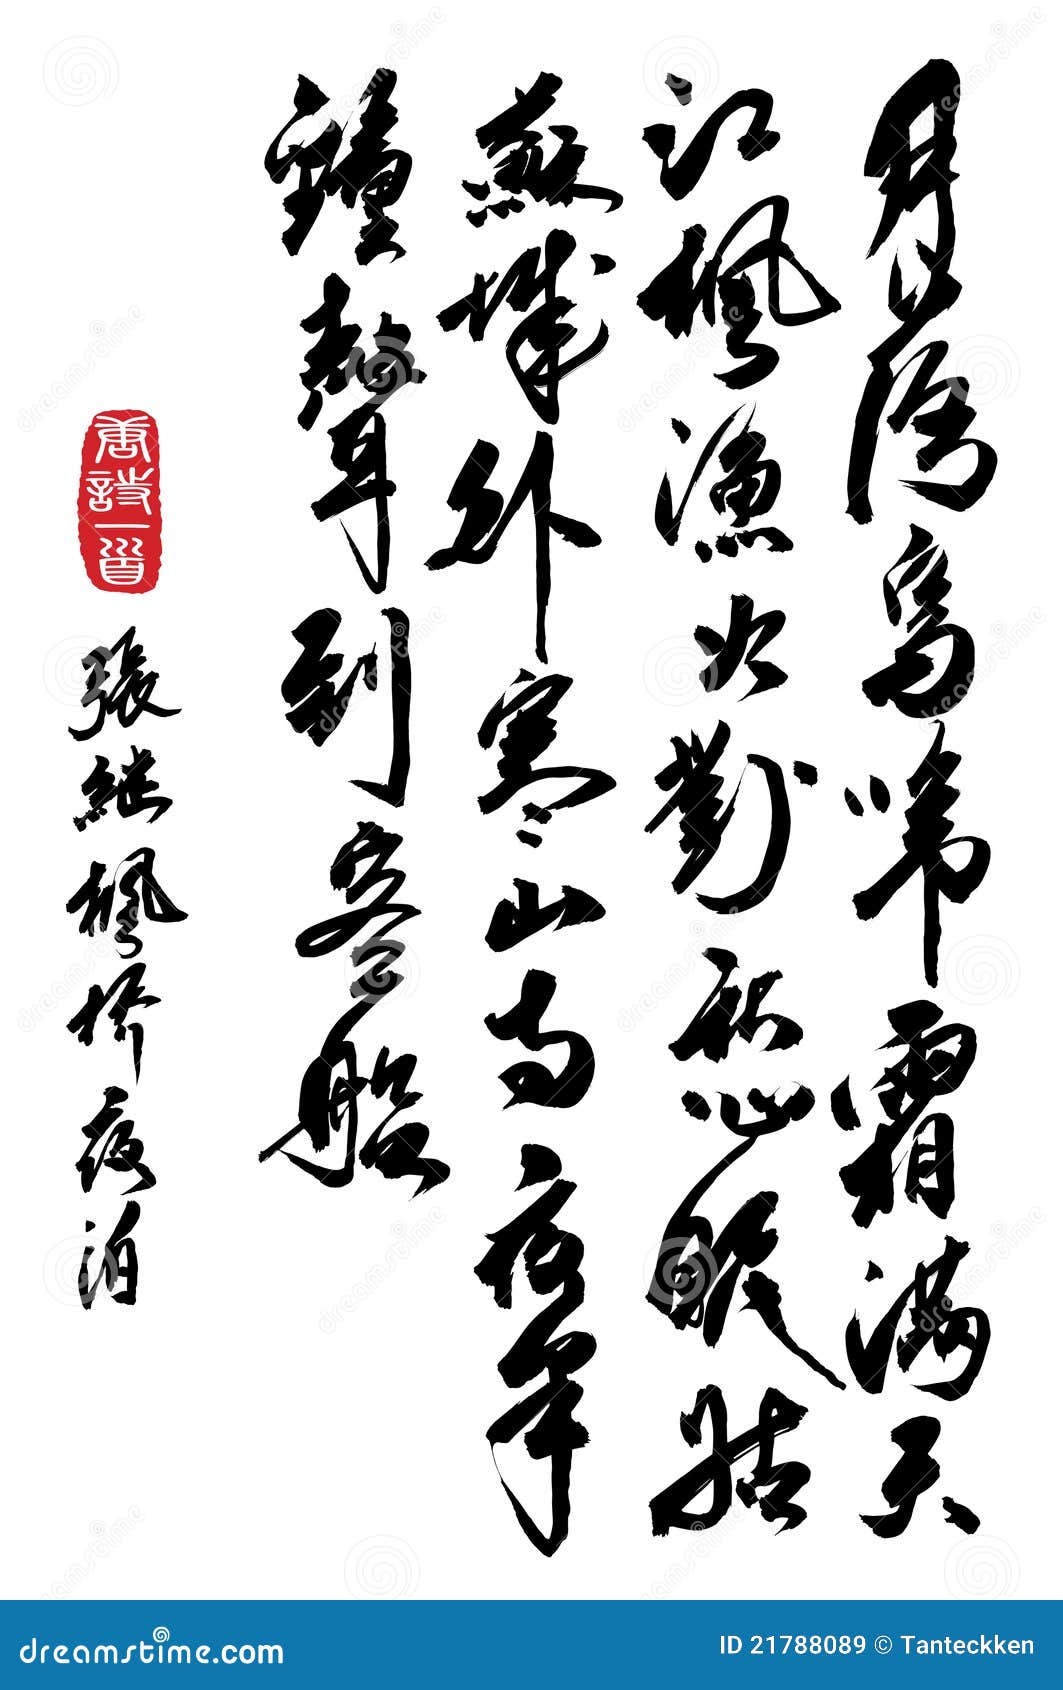 月落烏啼霜滿天
江楓漁火對愁眠姑
蘇城外寒山寺夜半
鐘聲到客船
唐詩一首
張繼楓橋夜泊
dreamstime
ID 21788089 © Tanteckken